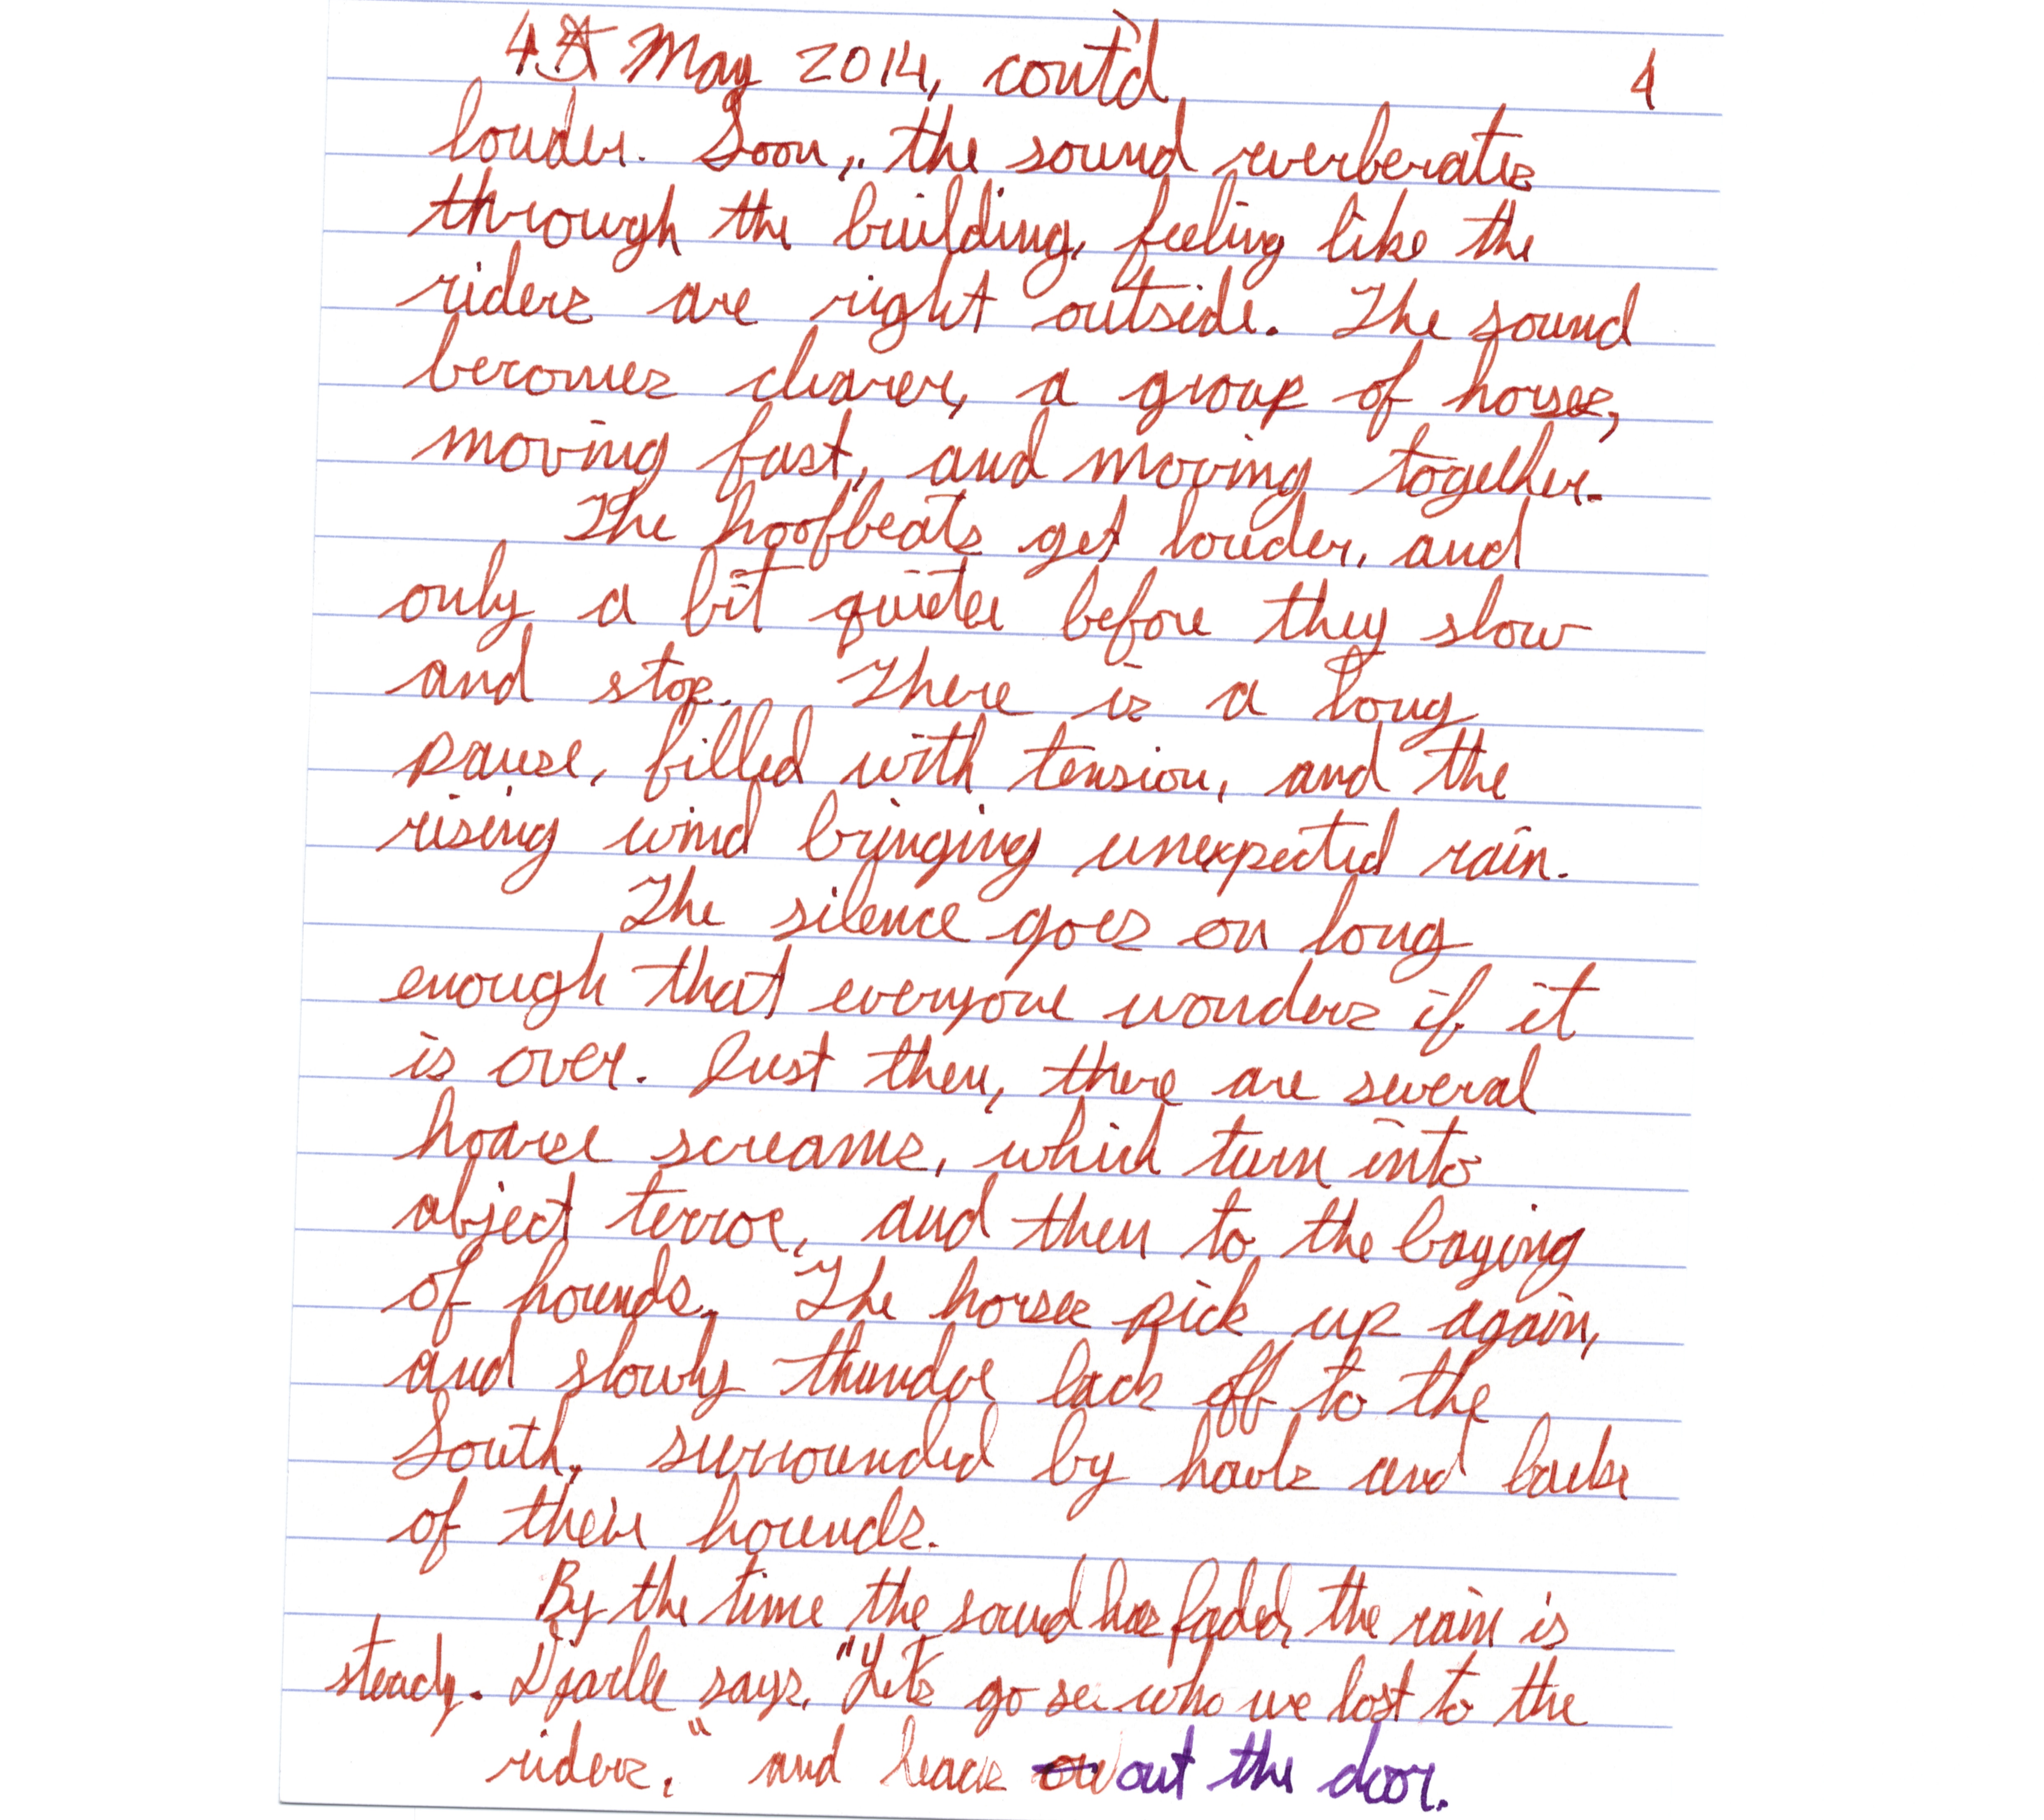 4th May 2014, cont'd 4
louder. Soon, the sound reverberates
through the building, feeling like the
riders are right outside. The sound
becomes clearer, a group of horses,
moving fast, and moving together.
The hoofbeats get louder, and
only a bit quieter before they slow
and stop. There is a long
pause, filled with tension, and the
rising wind bringing unexpected rain.
The silence goes on long
enough that everyone wonders if it
is over. Just then, there are several
hoarse screams, which turn into
abject terror, and then to the baying
of hounds. The horses pick up again,
and slowly thunder back off to the
South, surrounded by howls and barks
of their hounds.
By the time the sound has faded, the rain is
steady. Djarlle says, "Let's go see who we lost to the
riders." and heads out the door.